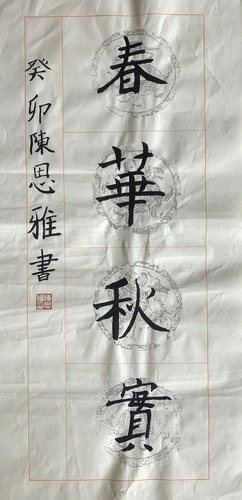 春華秋實
癸卯陳思雅書